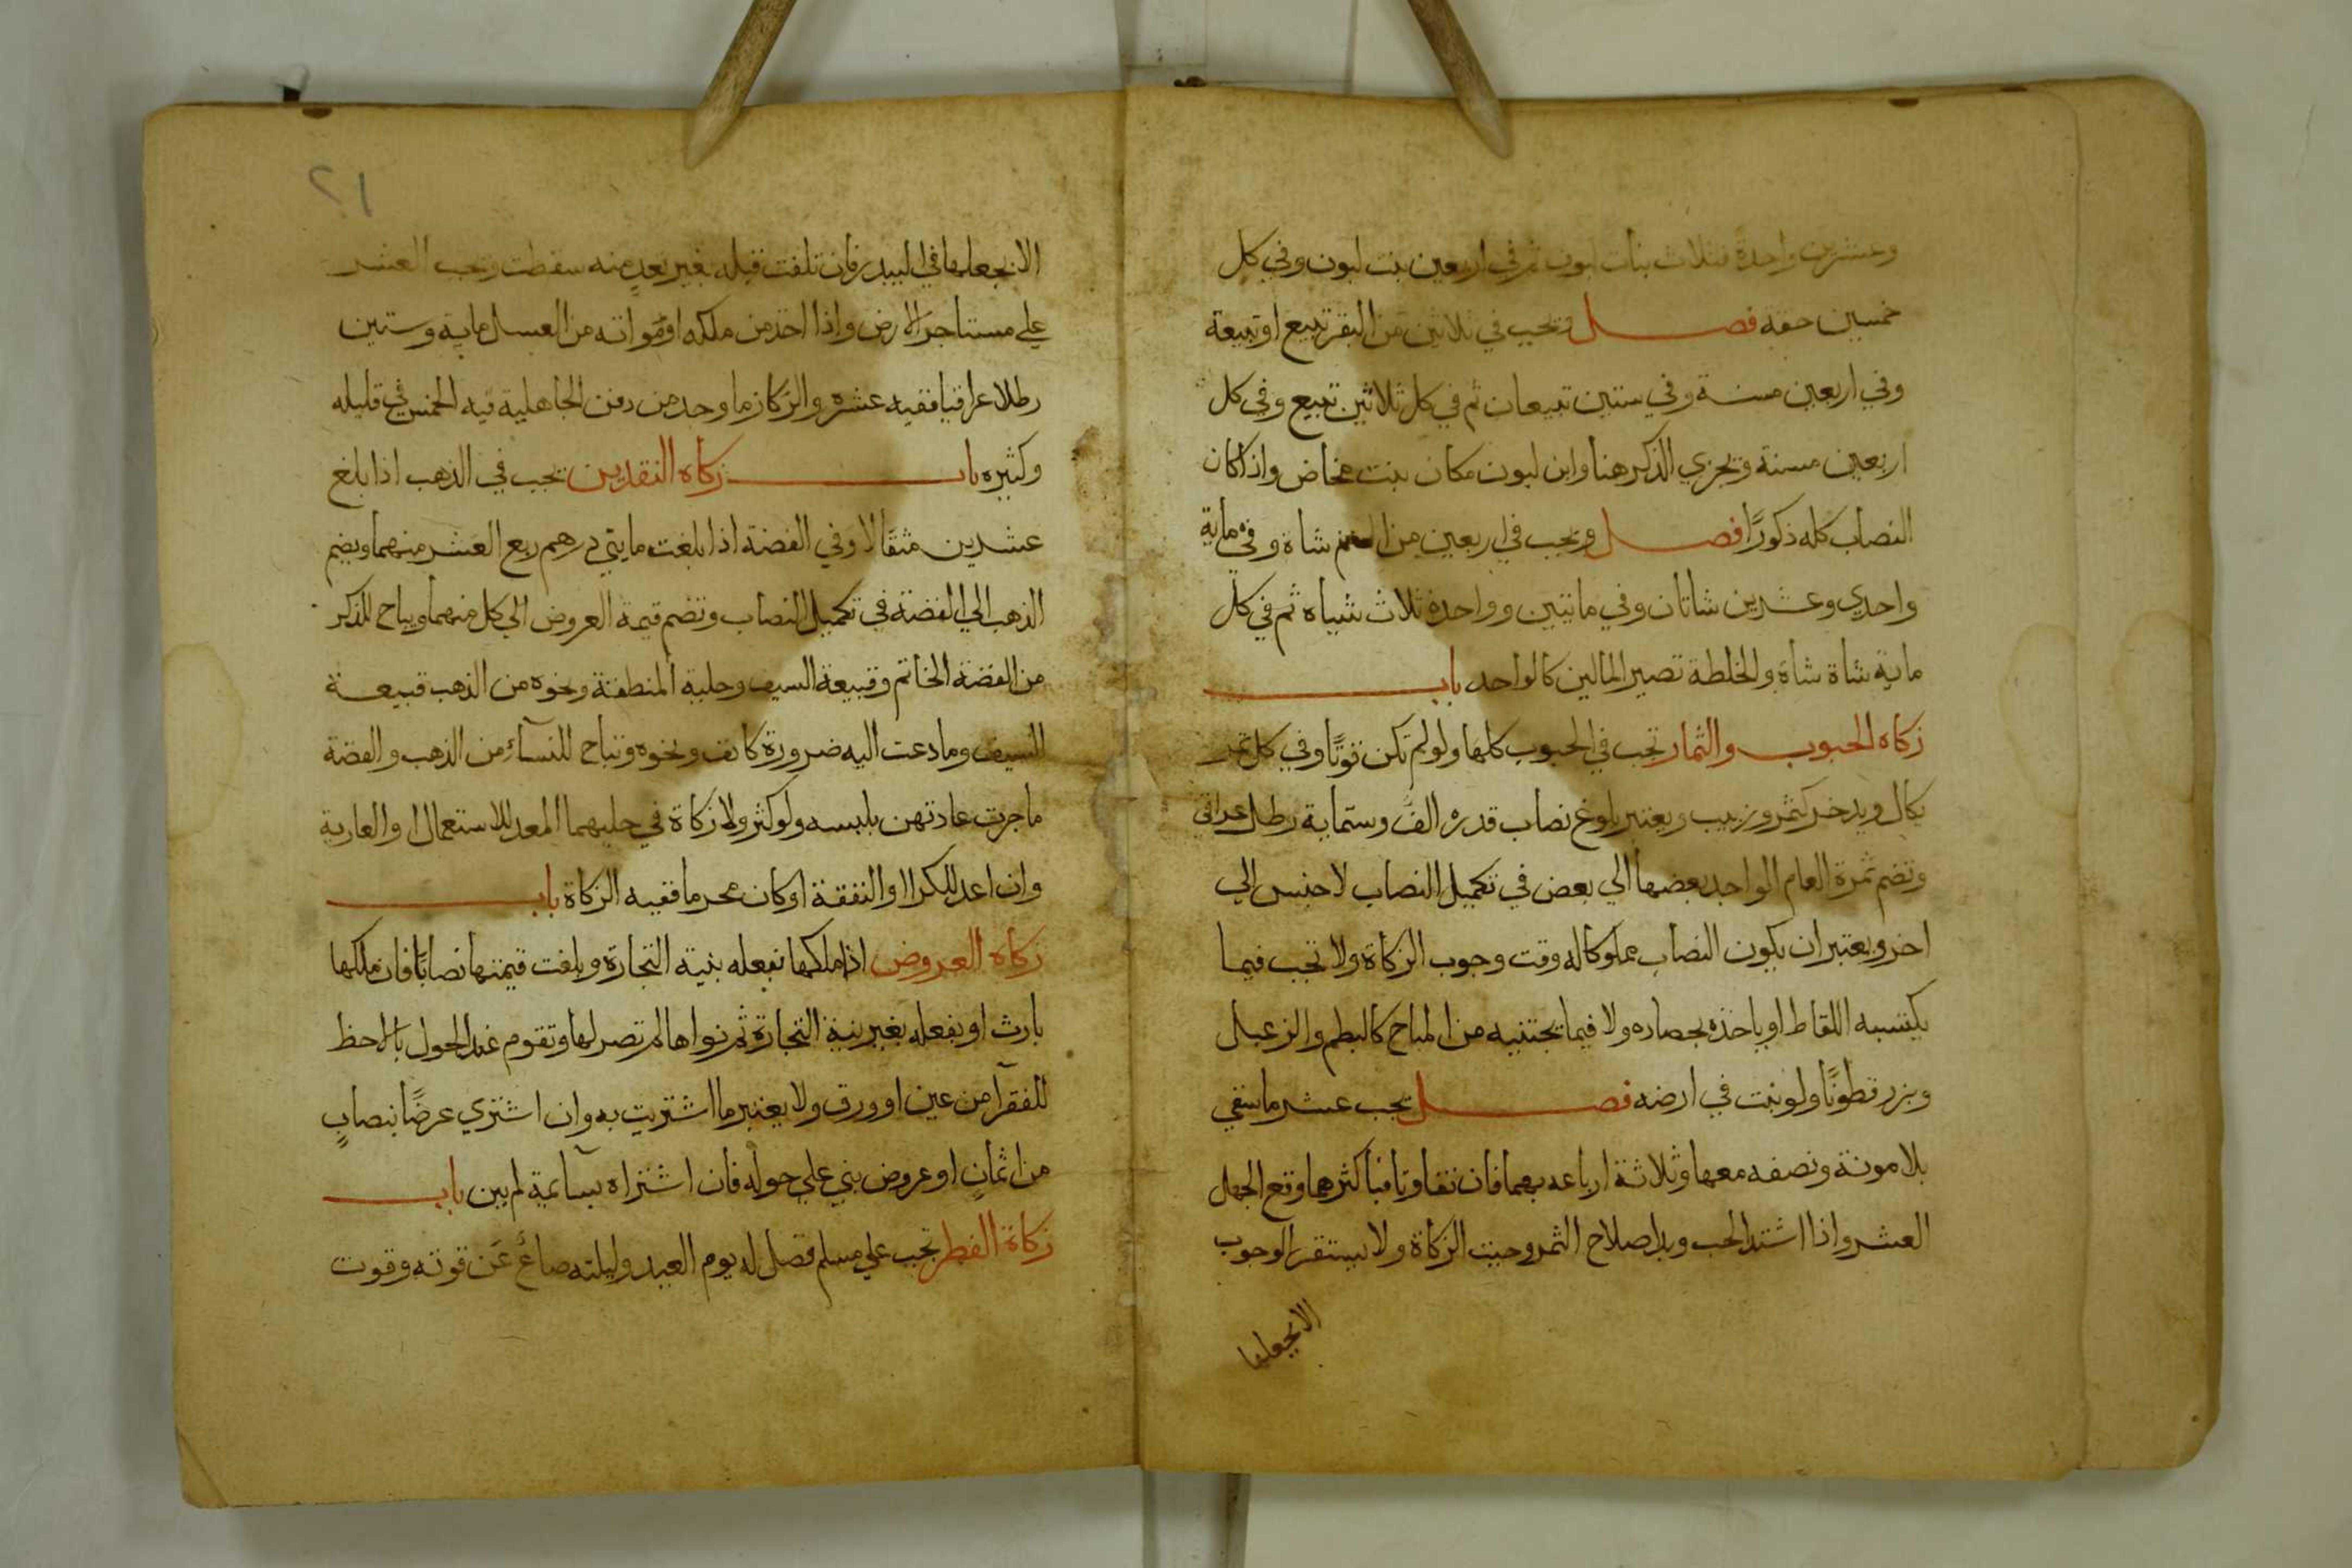 وعشرين واحدةً فثلاث بنات لبون ثم في اربعين بنت لبون وفي كل
خمسين حقه فصل ويجب في ثلاثين من البقر تبيع او تبيعة
وفي اربعين مسنة وفي ستين تبيعان ثم في كل ثلاثين تبيع وفي كل
اربعين مسنة ويجزي الذكر هنا وابن لبون مكان بنت مخاض واذا كان
النصاب كله ذكورًا فصل ويجب في اربعين من الغنم شاة وفي ماية
واحدي وعشرين شاتان وفي مائتين وواحدة ثلاث شياه ثم في كل
ماية شاة شاة والخلطة تصير المالين كالواحد باب
زكاه الحبوب والثمار تجب في الحبوب كلها ولو لم تكن قوتًا وفي كل ثمر
يكال ويدخر كتمر وزبيب ويعتبر بلوغ نصاب قدره الف وستماية رطل عراقي
وتضم ثمرة العام الواحد بعضها الي بعض في تكميل النصاب لا جنس الي
اخر ويعتبر ان يكون النصاب مملوكا له وقت وجوب الزكاة ولا تجب فيما
يكتسبه اللقاط او ياخذه بحصاده ولا فيما يجتنيه من المباح كالبطم والزعبل
وبزر قطونًا ولو نبت في ارضه فصل يجب عشر ما سقي
بلا مونة ونصفه معها وثلاثة ارباعه بهما فان تفاوتا فباكثرهما ومع الجهل
العشر واذا اشتد الحب وبدا صلاح الثمر وجبت الزكاة ولا يستقر الوجوب
الا بجعلها
٢١
الا بجعلها في البيدر فان تلفت قبله بغير تعدٍ منه سقطت ويجب العشر
علي مستاجر الارض واذا اخذ من ملكه او مواته من العسل ماية وستين
رطلا عراقيا ففيه عشره والركاز ما وجد من دفن الجاهلية فيه الخمس في قليله
وكثيره باب زكاه النقدين يجب في الذهب اذا بلغ
عشرين مثقالا وفي الفضة اذا بلغت مايتي درهم ربع العشر منهما ويضم
الذهب الي الفضة في تكميل النصاب وتضم قيمة العروض الي كل منهما ويباح للذكر
من الفضة الخاتم وقبيعة السيف وحلية المنطقة ونحوه من الذهب قبيعة
السيف وما دعت اليه ضرورة كانف ونحوه وتباح للنسآء من الذهب والفضة
ما جرت عادتهن بلبسه ولو كثر ولا زكاة في حليهما المعد للاستعمال او العارية
وان اعد للكرا او النفقة او كان محرما ففيه الزكاة باب
زكاه العروض اذا ملكها بفعله بنية التجارة وبلغت قيمتها نصابًا فان ملكها
بارث او بفعله بغير نية التجارة ثم نواها لم تصر لها وتقوم عند الحول بالاحظ
للفقرآ من عين او ورق ولا يعتبر ما اشتريت به وان اشتري عرضًا بنصابٍ
من اثمانٍ او عروض بني علي حوله فان اشتراه بسآئمة لم يبن باب
زكاة الفطر تجب علي مسلم فضل له يوم العيد وليلته صاعٌ عَن قوته وقوت